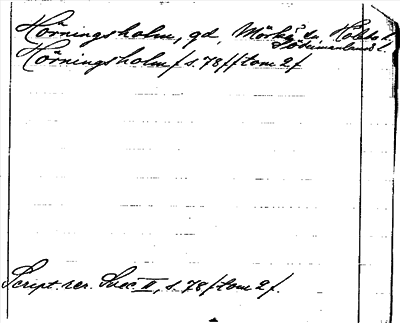 Hörningsholm, gd, Mörkö sn, Hölebo h.
Södermanlands l.
Hörningsholm f s. 78 ff tom 2 f
Script. rer. Svec. II, s. 78 f tom 2 f.